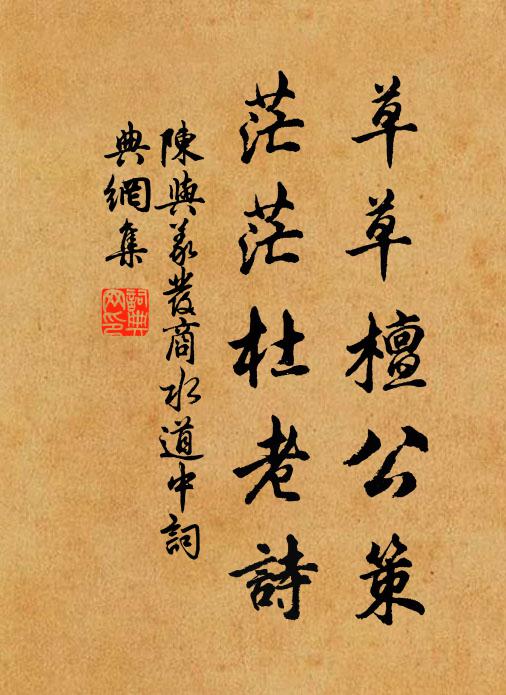 草草檀公策
茫茫杜老詩
陳與義發商水道中詞
典網集
詞典
网印